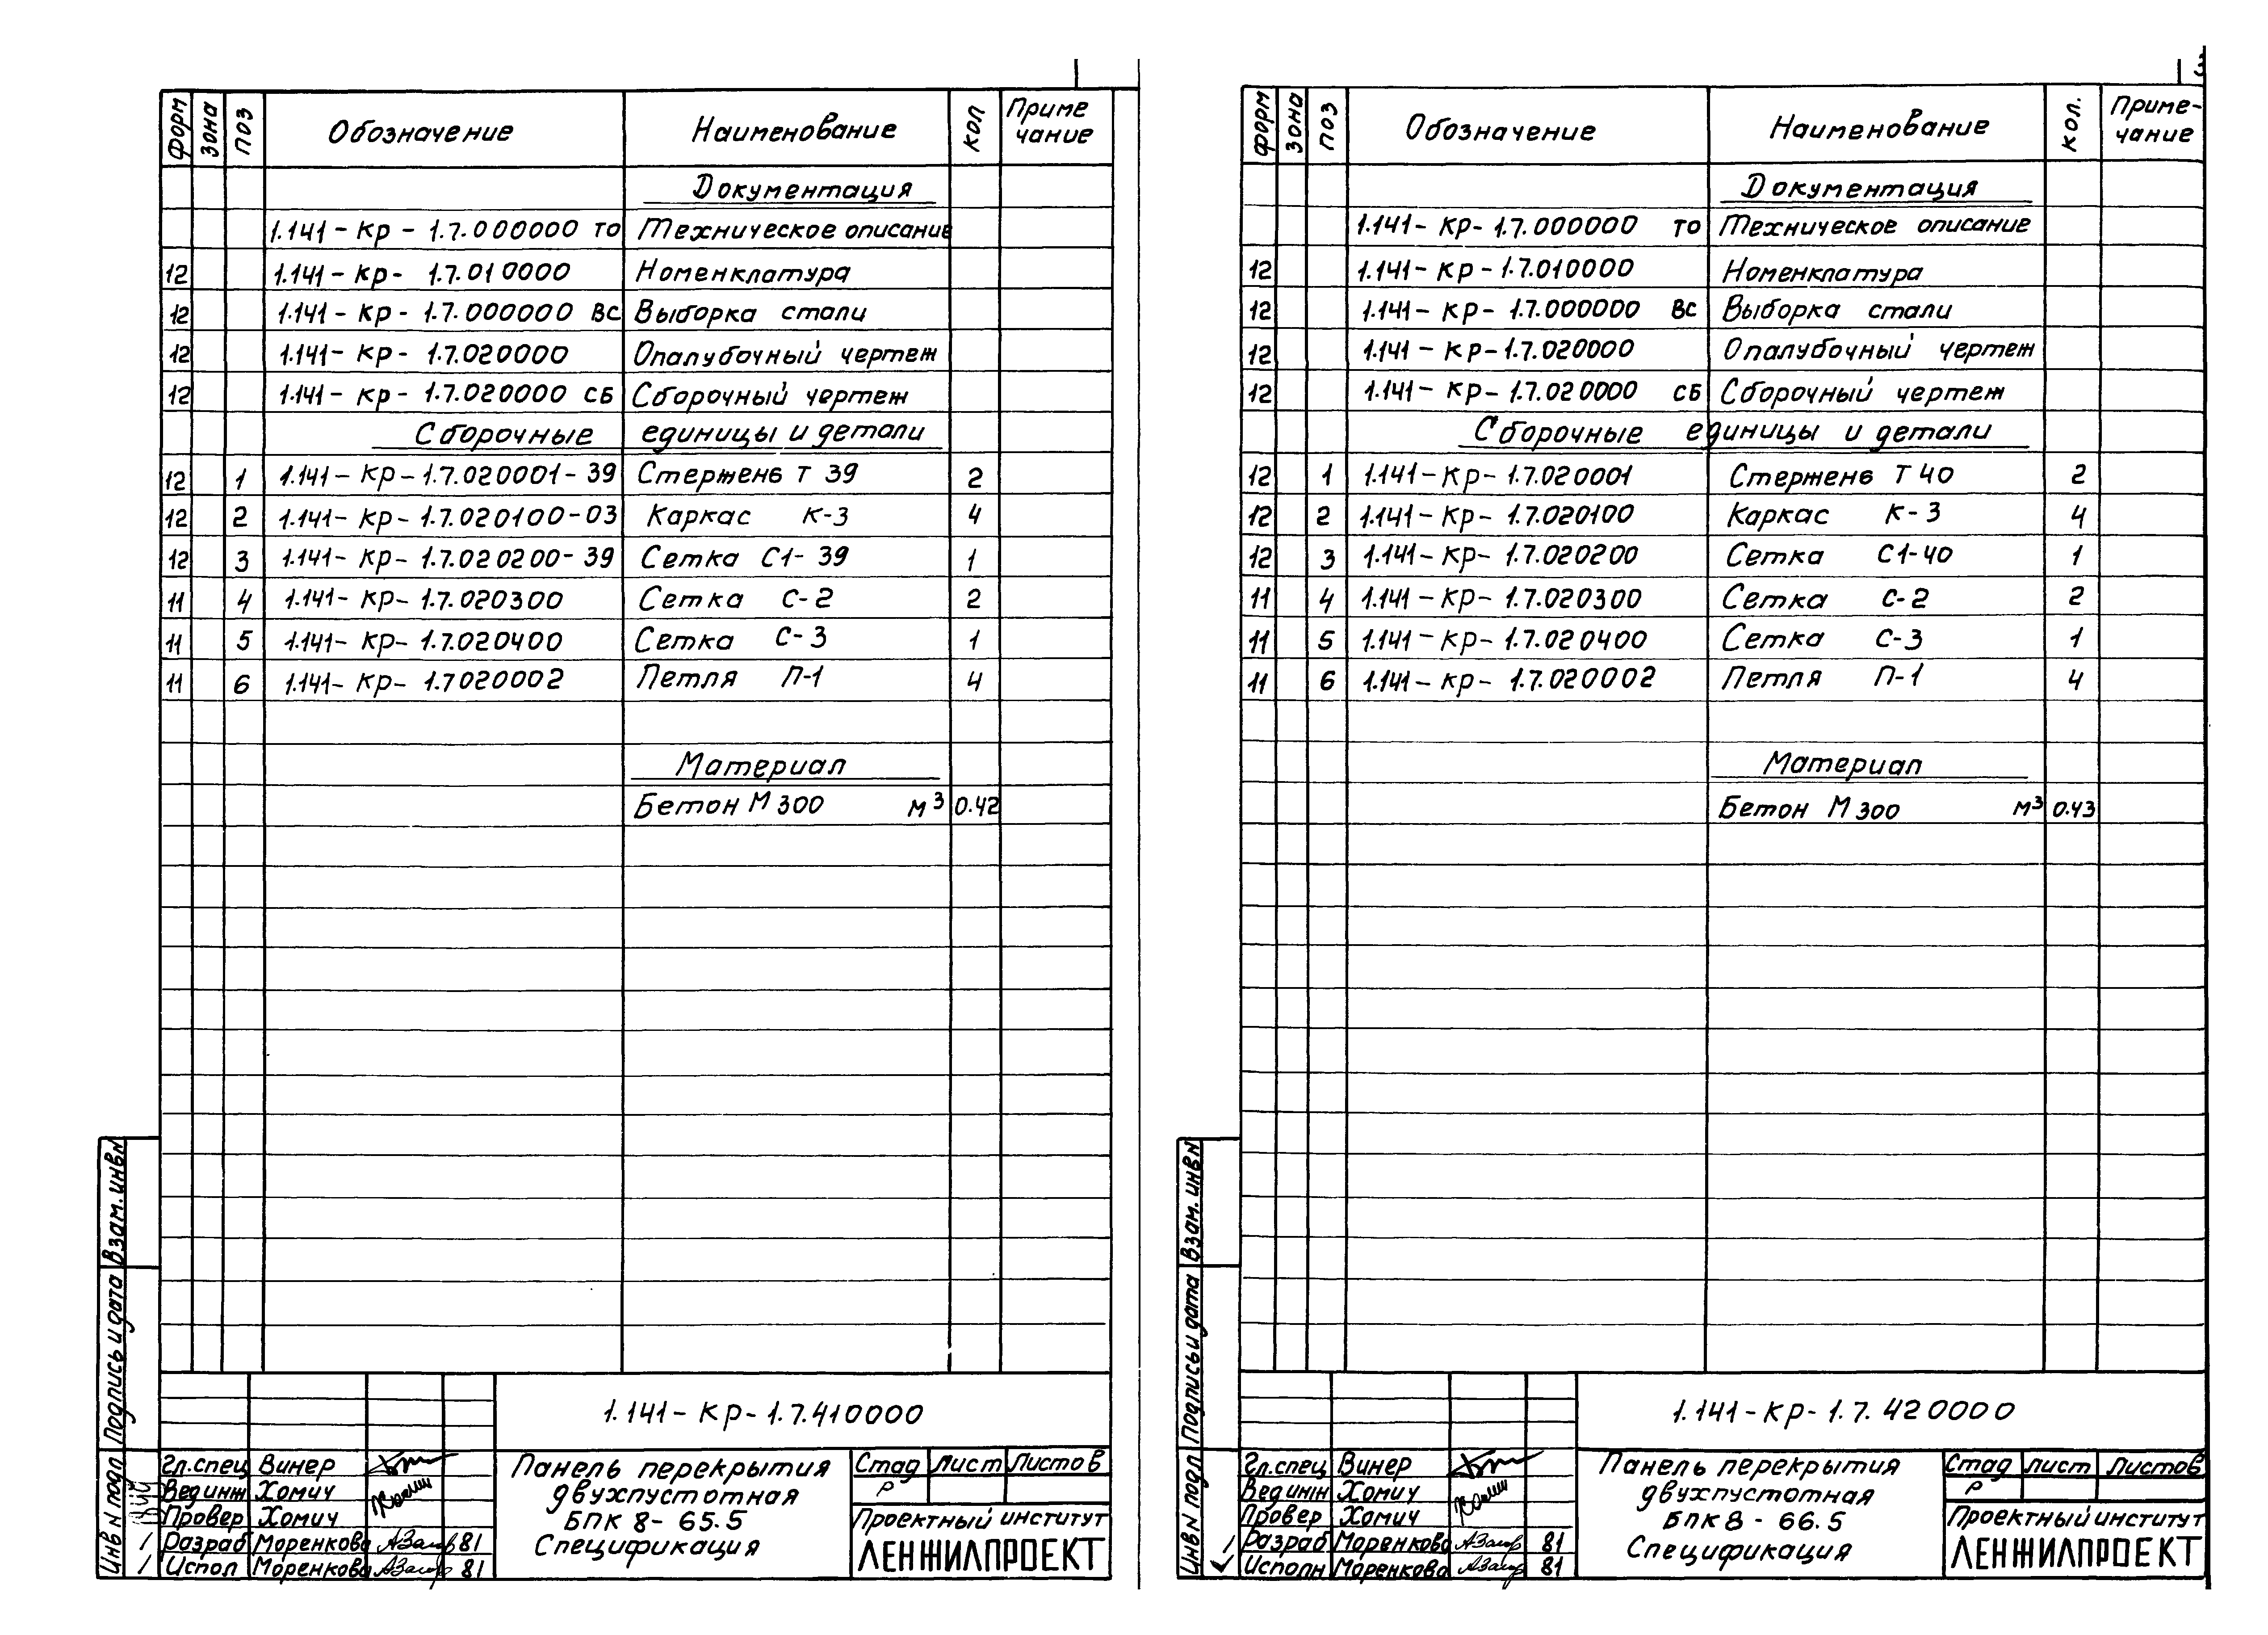 форм зона поз Обозначение Наименование кол Приме
чание
Документация
1.141-КР-1.7.000000 ТО Техническое описание
12 1.141-КР-1.7.010000 Номенклатура
12 1.141-КР-1.7.000000 ВС Выборка стали
12 1.141-КР-1.7.020000 Опалубочный чертеж
12 1.141-КР-1.7.020000 СБ Сборочный чертеж
Сборочные единицы и детали
12 1 1.141-КР-1.7.020001-39 Стержень Т 39 2
12 2 1.141-КР-1.7.020100-03 Каркас К-3 4
12 3 1.141-КР-1.7.020200-39 Сетка С1-39 1
11 4 1.141-КР-1.7.020300 Сетка С-2 2
11 5 1.141-КР-1.7.020400 Сетка С-3 1
11 6 1.141-КР-1.7020002 Петля П-1 4
Материал
Бетон М 300 м³ 0.42
Взам. инв N
Подпись и дата
Инв N подл
1.141-КР-1.7.410000
Гл.спец Винер
Вед инж Хомич
Провер Хомич
Разраб Моренкова 81
Испол Моренкова 81
Панель перекрытия
двухпустотная
БПК 8-65.5
Спецификация
Стад Лист Листов
Р
Проектный институт
ЛЕНЖИЛПРОЕКТ
3
форм зона поз Обозначение Наименование кол. Приме-
чание
Документация
1.141-КР-1.7.000000 ТО Техническое описание
12 1.141-КР-1.7.010000 Номенклатура
12 1.141-КР-1.7.000000 ВС Выборка стали
12 1.141-КР-1.7.020000 Опалубочный чертеж
12 1.141-КР-1.7.020000 СБ Сборочный чертеж
Сборочные единицы и детали
12 1 1.141-КР-1.7.020001 Стержень Т 40 2
12 2 1.141-КР-1.7.020100 Каркас К-3 4
12 3 1.141-КР-1.7.020200 Сетка С1-40 1
11 4 1.141-КР-1.7.020300 Сетка С-2 2
11 5 1.141-КР-1.7.020400 Сетка С-3 1
11 6 1.141-КР-1.7.020002 Петля П-1 4
Материал
Бетон М 300 м³ 0.43
Взам. инв N
Подпись и дата
Инв N подл
1.141-КР-1.7.420000
Гл.спец Винер
Вед инж Хомич
Провер Хомич
Разраб Моренкова 81
Исполн Моренкова 81
Панель перекрытия
двухпустотная
БПК 8-66.5
Спецификация
Стад Лист Листов
Р
Проектный институт
ЛЕНЖИЛПРОЕКТ